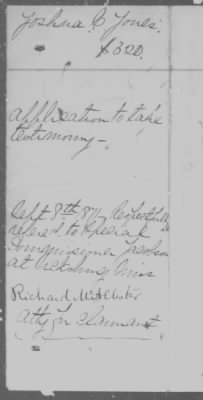 Joshua C Jones.
$320.
application to take
testimony—
Sept 8th 1871, Respectfully
refered to Special
Commissioner Jackson
at Vicksburg Miss
Richard McAllister
atty for claimant